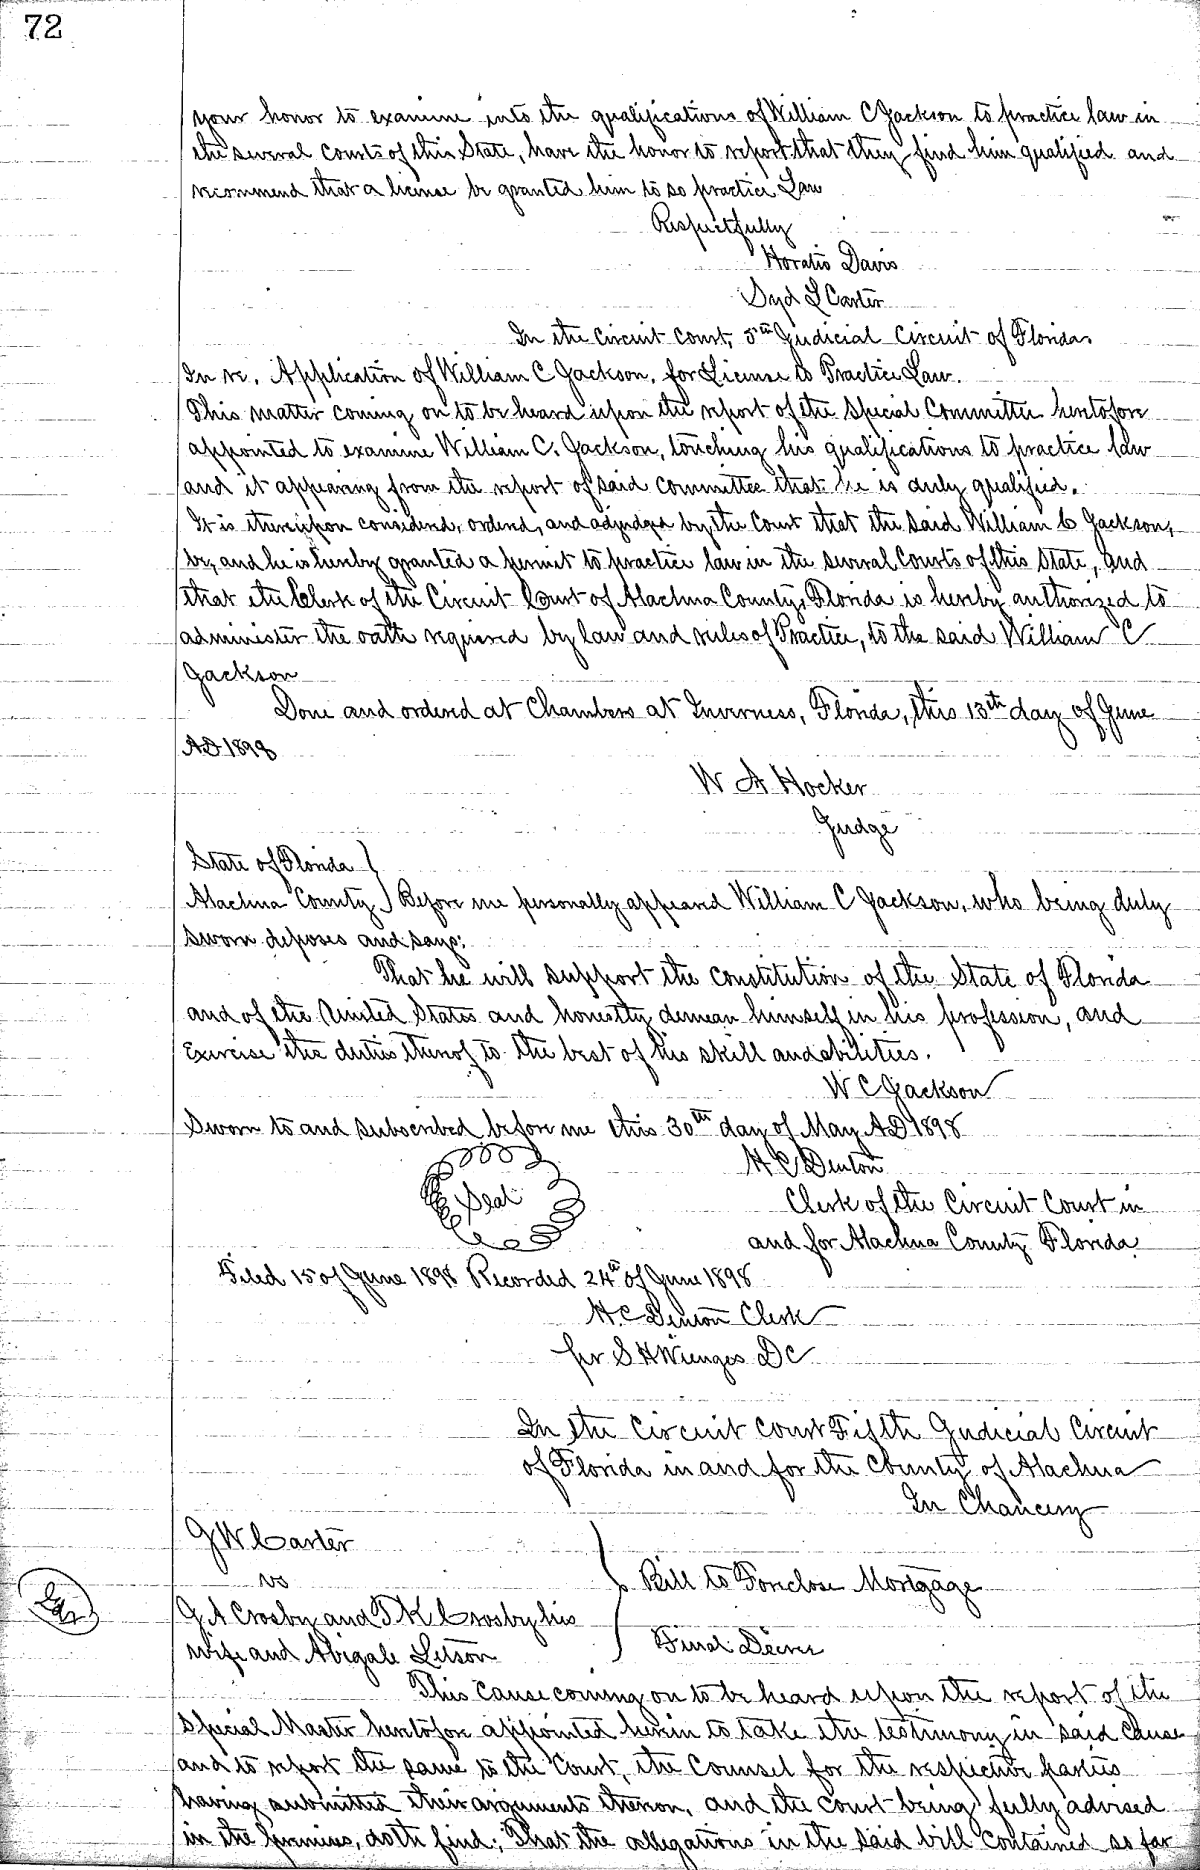 72
your honor to examine into the qualifications of William C Jackson to practice law in
the several courts of this State, have the honor to report that they find him qualified and
recommend that a license be granted him to so practice Law
Respectfully
Horatio Davis
Syd L Carter
In the Circuit Court, 5th Judicial Circuit of Florida.
In re. Application of William C Jackson, for License to Practice Law.
This matter coming on to be heard upon the report of the Special Committee heretofore
appointed to examine William C. Jackson, touching his qualifications to practice law
and it appearing from the report of said committee that he is duly qualified.
It is thereupon considered, ordered, and adjudged by the Court that the said William C Jackson,
be, and he is hereby granted a permit to practice law in the several Courts of this State, and
that the Clerk of the Circuit Court of Alachua County, Florida is hereby authorized to
administer the oath required by law and rules of Practice, to the said William C
Jackson
Done and ordered at Chambers at Inverness, Florida, this 13th day of June
A.D. 1898
W A Hocker
Judge
State of Florida }
Alachua County } Before me personally appeared William C Jackson, who being duly
sworn deposes and says;
That he will support the constitution of the State of Florida
and of the United States and honestly demean himself in his profession, and
exercise the duties thereof to the best of his skill and abilities.
W C Jackson
Sworn to and subscribed before me this 30th day of May A.D 1898
H C Denton
Seal
Clerk of the Circuit Court in
and for Alachua County Florida
Filed 15 of June 1898 Recorded 24th of June 1898
H. C Denton Clerk
per S H Wienges DC
In the Circuit Court Fifth Judicial Circuit
of Florida in and for the County of Alachua
In Chancery
G W Carter
vs
Bill to Foreclose Mortgage
G A Crosby and T K Crosby his
wife and Abigale Letson
Final Decree
This cause coming on to be heard upon the report of the
Special Master heretofore appointed herein to take the testimony in said cause
and to report the same to the Court, the counsel for the respective parties
having submitted their arguments thereon, and the court being fully advised
in the premises, doth find; That the allegations in the said bill contained so far